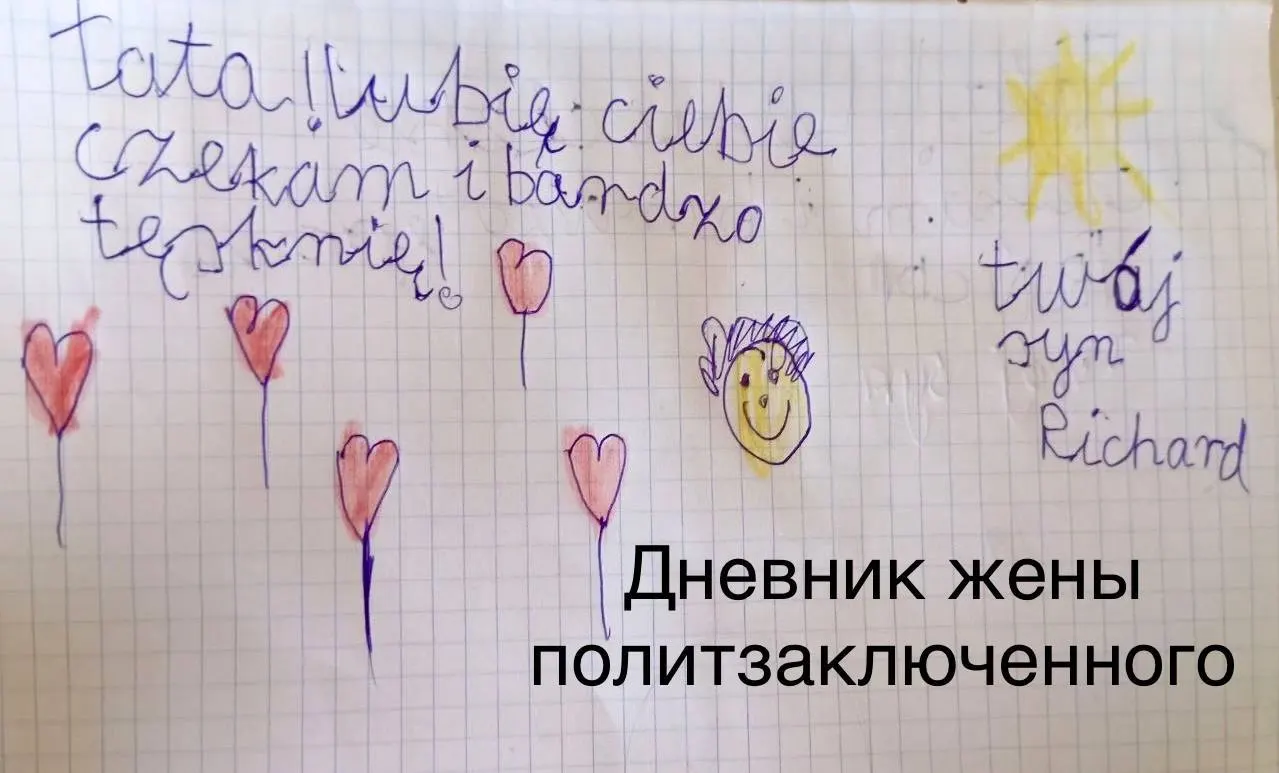 tata! lubię ciebie
czekam i bardzo
tęsknię!
twój
syn
Richard
Дневник жены
политзаключенного